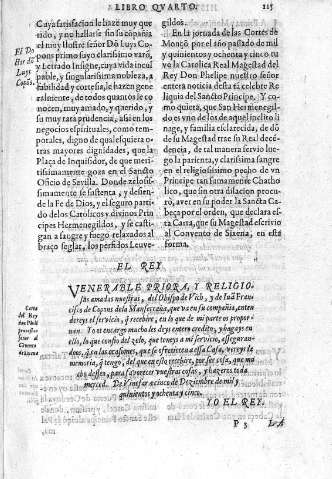 LIBRO QVARTO.
115
El Do
tor dõ
Luys
Copõs.
Cuya satisfacion le hazē muy que
rido, y no hallarse sin su cōpañia
el muy Illustre señor Dõ Luys Co
pons primo suyo clarissimo varõ,
y Letrado Insigne, cuya vida incul
pable, y singularissima nobleza, a-
fabilidad y cortesia, le hazen gene
ralmente, de todos quantos le co
nocen, muy amado, y querido, y
su muy rata prudencia, assi en los
negocios espirituales, como tem-
porales, digno de qualesquiera o-
tras mayores dignidades, que la
Plaça de Inquisidor, de que meri-
tissimamente goza en el Sancto
Officio de Sevilla. Donde zelosis-
simamente se sustenta, y defien-
de la Fe de Dios, y el seguro parti-
do delos Catolicos y divinos Prin
cipes Hermenegildos, y se casti-
gan a sangre y fuego relaxados al
braço seglar, los perfidos Leuve-
gildos.
En la jornada de las Cortes de
Monçõ por el año passado de mil
y quinientos y ochenta y cinco tu
vo la Catolica Real Magestad del
Rey Don Phelipe nuestro señor
entera noticia desta tā celebre Re
liquia del Sancto Principe. Y co-
mo quiera, que San Hermenegil-
do es uno delos de aquel inclito li
nage, y familia esclarecida, de dõ
de su Magestad trae su Real decē-
dencia, de tal manera servio lue-
go la parienta, y clarissima sangre
en el religiosissimo pecho de vn
Principe tan sumamente Chatho
lico, que sin otra dilacion procu-
rò, aver en su poder la Sancta Ca-
beça por el orden, que declara es-
ta Carta, que su Magestad escrivio
al Convento de Sixena, en esta
forma.
EL REY
Carta
del Rey
don Phili
pe nuestro
señor al
Convento
de Sixena
VENERABLE PRIORA, Y RELIGIO-
sas amadas nuestras, del Obispo de Vich, y de Iuā Fran
cisco de Copons de la Manresana, que va en su compañia, enten
dereys el servicio, q̃ recebire, en lo que de mi parte os propor-
nan. Yo os encargo mucho les deys entero credito, y hagays en
ello, lo que confio del zelo, que teneys a mi servicio, assegurā-
doos, q̃ en las ocasiones, que se ofrecieren a essa Casa, vereys la
memoria, q̃ tengo, del que en esto recibire, por ser cosa, que mu
cho desseo, para favorecer vuestras cosas, y hazeros toda
merced. De Monçon a cinco de Deziembre de mil y
quinientos y ochenta y cinco.
YO EL REY.
P 3 LA